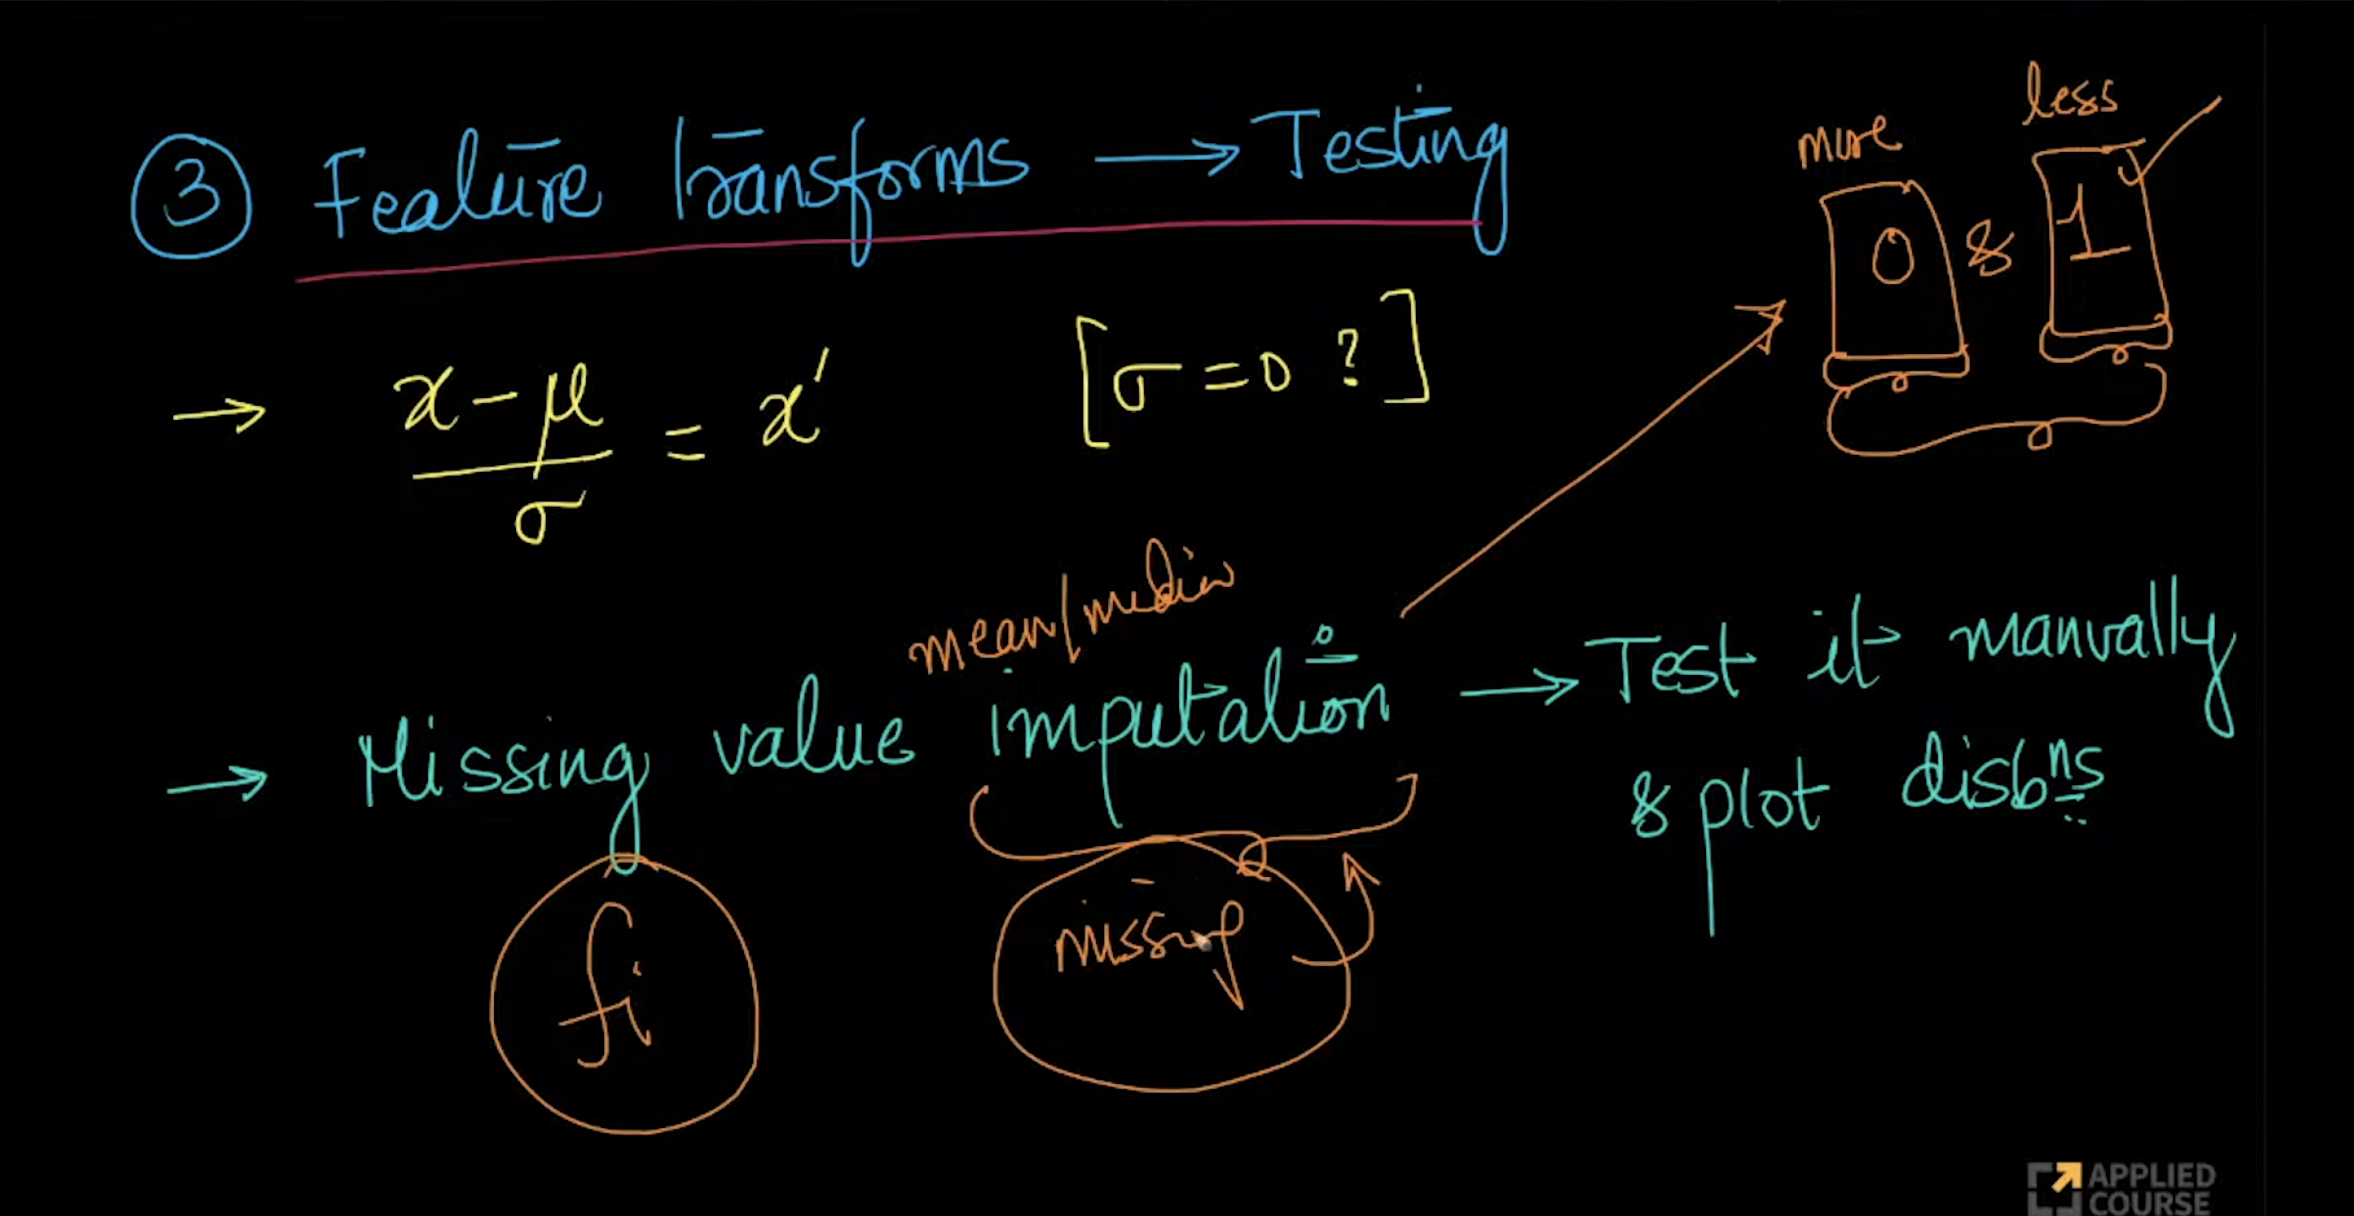 less
more
③ Feature transforms → Testing
0 & 1
→ x-μ/σ = x' [σ=0 ?]
mean/median
→ Missing value imputation → Test it manually
& plot disbns
fi
missing
APPLIED
COURSE